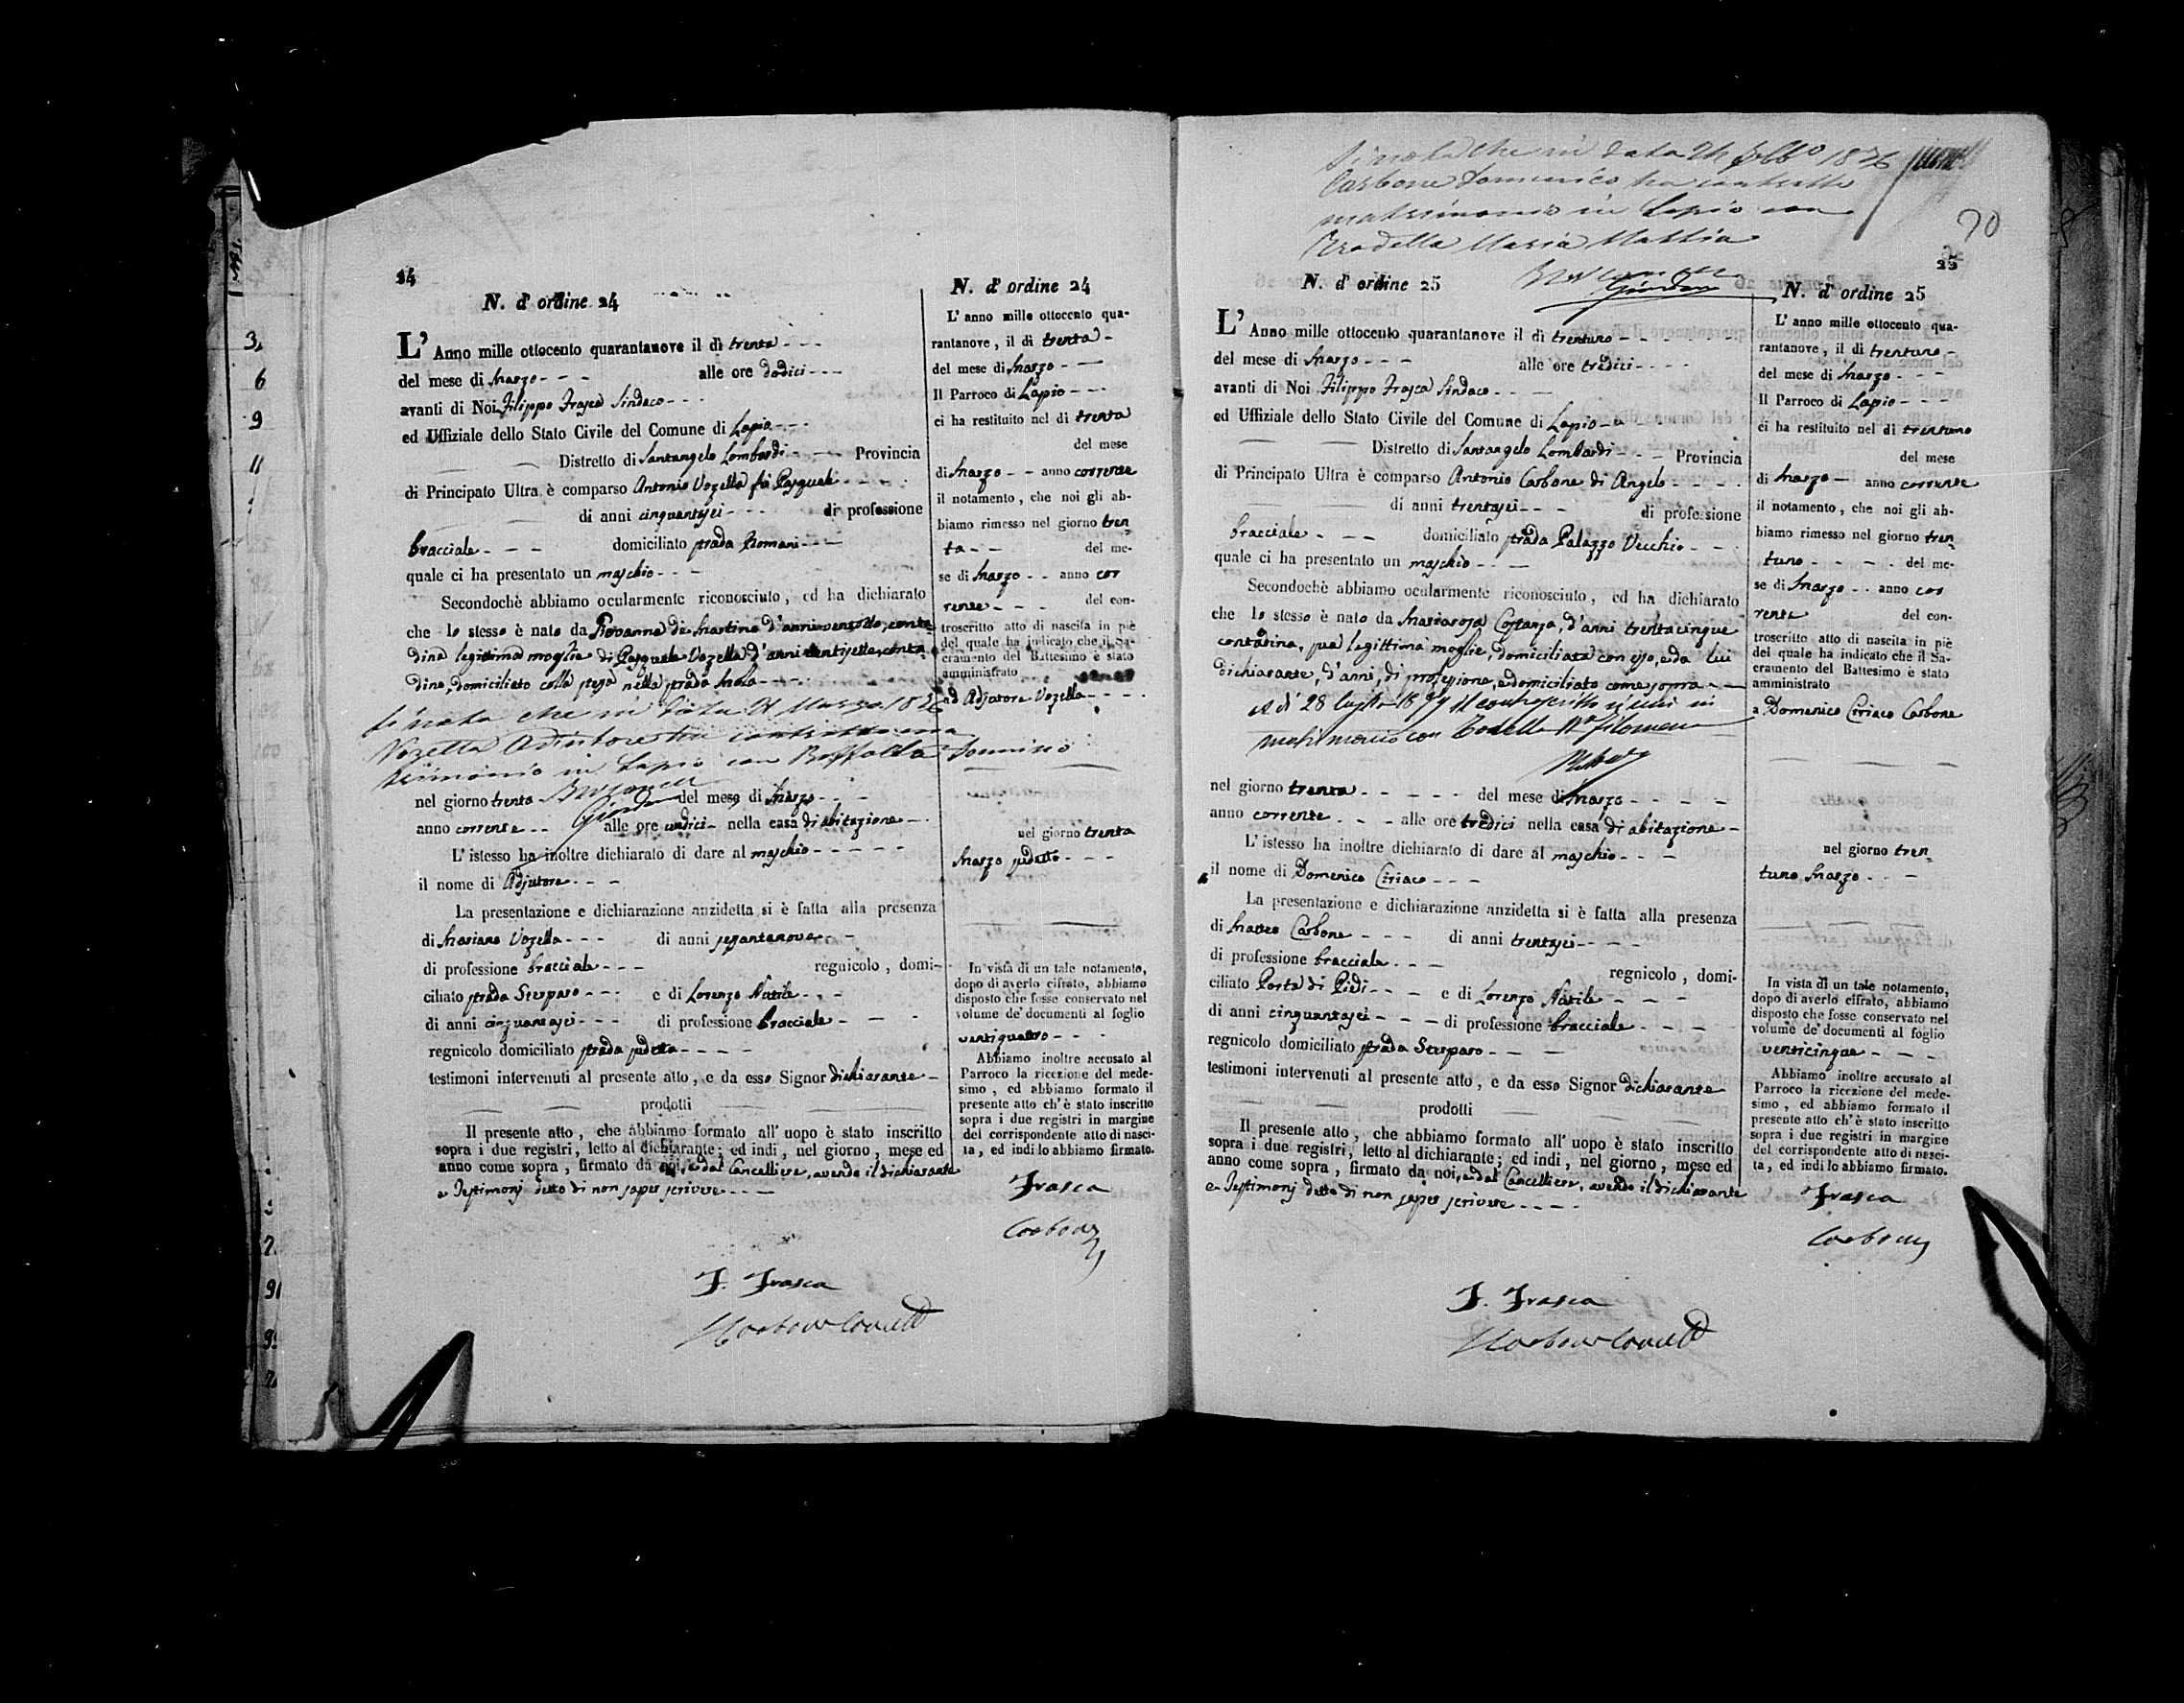 24
N. d' ordine 24
L' Anno mille ottocento quarantanove il dì trenta
del mese di Marzo alle ore dodici
avanti di Noi Filippo Frasca Sindaco
ed Uffiziale dello Stato Civile del Comune di Lapio
Distretto di Santangelo Lombardi Provincia
di Principato Ultra è comparso Antonio Vozella fu Pasquale
di anni cinquantasei di professione
bracciale domiciliato strada Romani
quale ci ha presentato un maschio
Secondochè abbiamo ocularmente riconosciuto, ed ha dichiarato
che lo stesso è nato da Giovanna de Martino d'anni ventotto, conta
dina legittima moglie di Pasquale Vozella d'anni ventisette, conta
dino, domiciliato colla stessa nella strada
Si nota che in data 21 Marzo 18
Vozella Adiutore ha contratto ma
trimonio in Lapio con Domino
nel giorno trenta del mese di Marzo
anno corrente alle ore undici nella casa di abitazione
L' istesso ha inoltre dichiarato di dare al maschio
il nome di Adjutore
La presentazione e dichiarazione anzidetta si è fatta alla presenza
di Mariano Vozella di anni sessantanove
di professione bracciale regnicolo, domi-
ciliato strada Scesparo e di Lorenzo
di anni cinquantasei di professione bracciale
regnicolo domiciliato strada sudetta
testimoni intervenuti al presente atto, e da esso Signor dichiarante
prodotti
Il presente atto, che abbiamo formato all' uopo è stato inscritto
sopra i due registri, letto al dichiarante; ed indi, nel giorno, mese ed
anno come sopra, firmato da noi, e dal Cancelliere, avendo il dichiarante
e Testimonj detto di non saper scrivere
F. Frasca
N. d' ordine 24
L' anno mille ottocento qua-
rantanove, il di trenta
del mese di Marzo
Il Parroco di Lapio
ci ha restituito nel di trenta
del mese
di Marzo anno corrente
il notamento, che noi gli ab-
biamo rimesso nel giorno tren
ta del me-
se di Marzo anno cor
rente del con-
troscritto atto di nascita in piè
del quale ha indicato che il Sa-
cramento del Battesimo è stato
amministrato
ad Adjutore Vozella
nel giorno trenta
Marzo sudetto
In vista di un tale notamento,
dopo di averlo cifrato, abbiamo
disposto che fosse conservato nel
volume de' documenti al foglio
ventiquattro
Abbiamo inoltre accusato al
Parroco la ricezione del mede-
simo, ed abbiamo formato il
presente atto ch' è stato inscritto
sopra i due registri in margine
del corrispondente atto di nasci-
ta, ed indi lo abbiamo firmato.
Frasca
Carbone
Si nota che in data 24 1876
Carbone Domenico ha contratto
matrimonio in Lapio con
Maria Mattia
70
25
N. d' ordine 25
L' Anno mille ottocento quarantanove il dì trentuno
del mese di Marzo alle ore tredici
avanti di Noi Filippo Frasca Sindaco
ed Uffiziale dello Stato Civile del Comune di Lapio
Distretto di Santangelo Lombardi Provincia
di Principato Ultra è comparso Antonio Carbone di Angelo
di anni trentasei di professione
bracciale domiciliato strada Palazzo Vecchio
quale ci ha presentato un maschio
Secondochè abbiamo ocularmente riconosciuto, ed ha dichiarato
che lo stesso è nato da Mariarosa Costanza, d'anni trentacinque
contadina, sua legittima moglie, domiciliata con esso, e da lui
dichiarante, d'anni, di professione, e domiciliato come sopra
A dì 28 luglio il controscritto si unì in
matrimonio con Filomena
nel giorno trenta del mese di Marzo
anno corrente alle ore tredici nella casa di abitazione
L' istesso ha inoltre dichiarato di dare al maschio
il nome di Domenico Ciriaco
La presentazione e dichiarazione anzidetta si è fatta alla presenza
di Matteo Carbone di anni trentasei
di professione bracciale regnicolo, domi-
ciliato Porta di Piedi e di Lorenzo
di anni cinquantasei di professione bracciale
regnicolo domiciliato strada Scesparo
testimoni intervenuti al presente atto, e da esso Signor dichiarante
prodotti
Il presente atto, che abbiamo formato all' uopo è stato inscritto
sopra i due registri, letto al dichiarante; ed indi, nel giorno, mese ed
anno come sopra, firmato da noi, e dal Cancelliere, avendo il dichiarante
e Testimonj detto di non saper scrivere
F. Frasca
N. d' ordine 25
L' anno mille ottocento qua-
rantanove, il di trentuno
del mese di Marzo
Il Parroco di Lapio
ci ha restituito nel di trentuno
del mese
di Marzo anno corrente
il notamento, che noi gli ab-
biamo rimesso nel giorno tren
tuno del me-
se di Marzo anno cor
rente del con-
troscritto atto di nascita in piè
del quale ha indicato che il Sa-
cramento del Battesimo è stato
amministrato
a Domenico Ciriaco Carbone
nel giorno tren
tuno Marzo
In vista di un tale notamento,
dopo di averlo cifrato, abbiamo
disposto che fosse conservato nel
volume de' documenti al foglio
venticinque
Abbiamo inoltre accusato al
Parroco la ricezione del mede-
simo, ed abbiamo formato il
presente atto ch' è stato inscritto
sopra i due registri in margine
del corrispondente atto di nasci-
ta, ed indi lo abbiamo firmato.
Frasca
Carbone